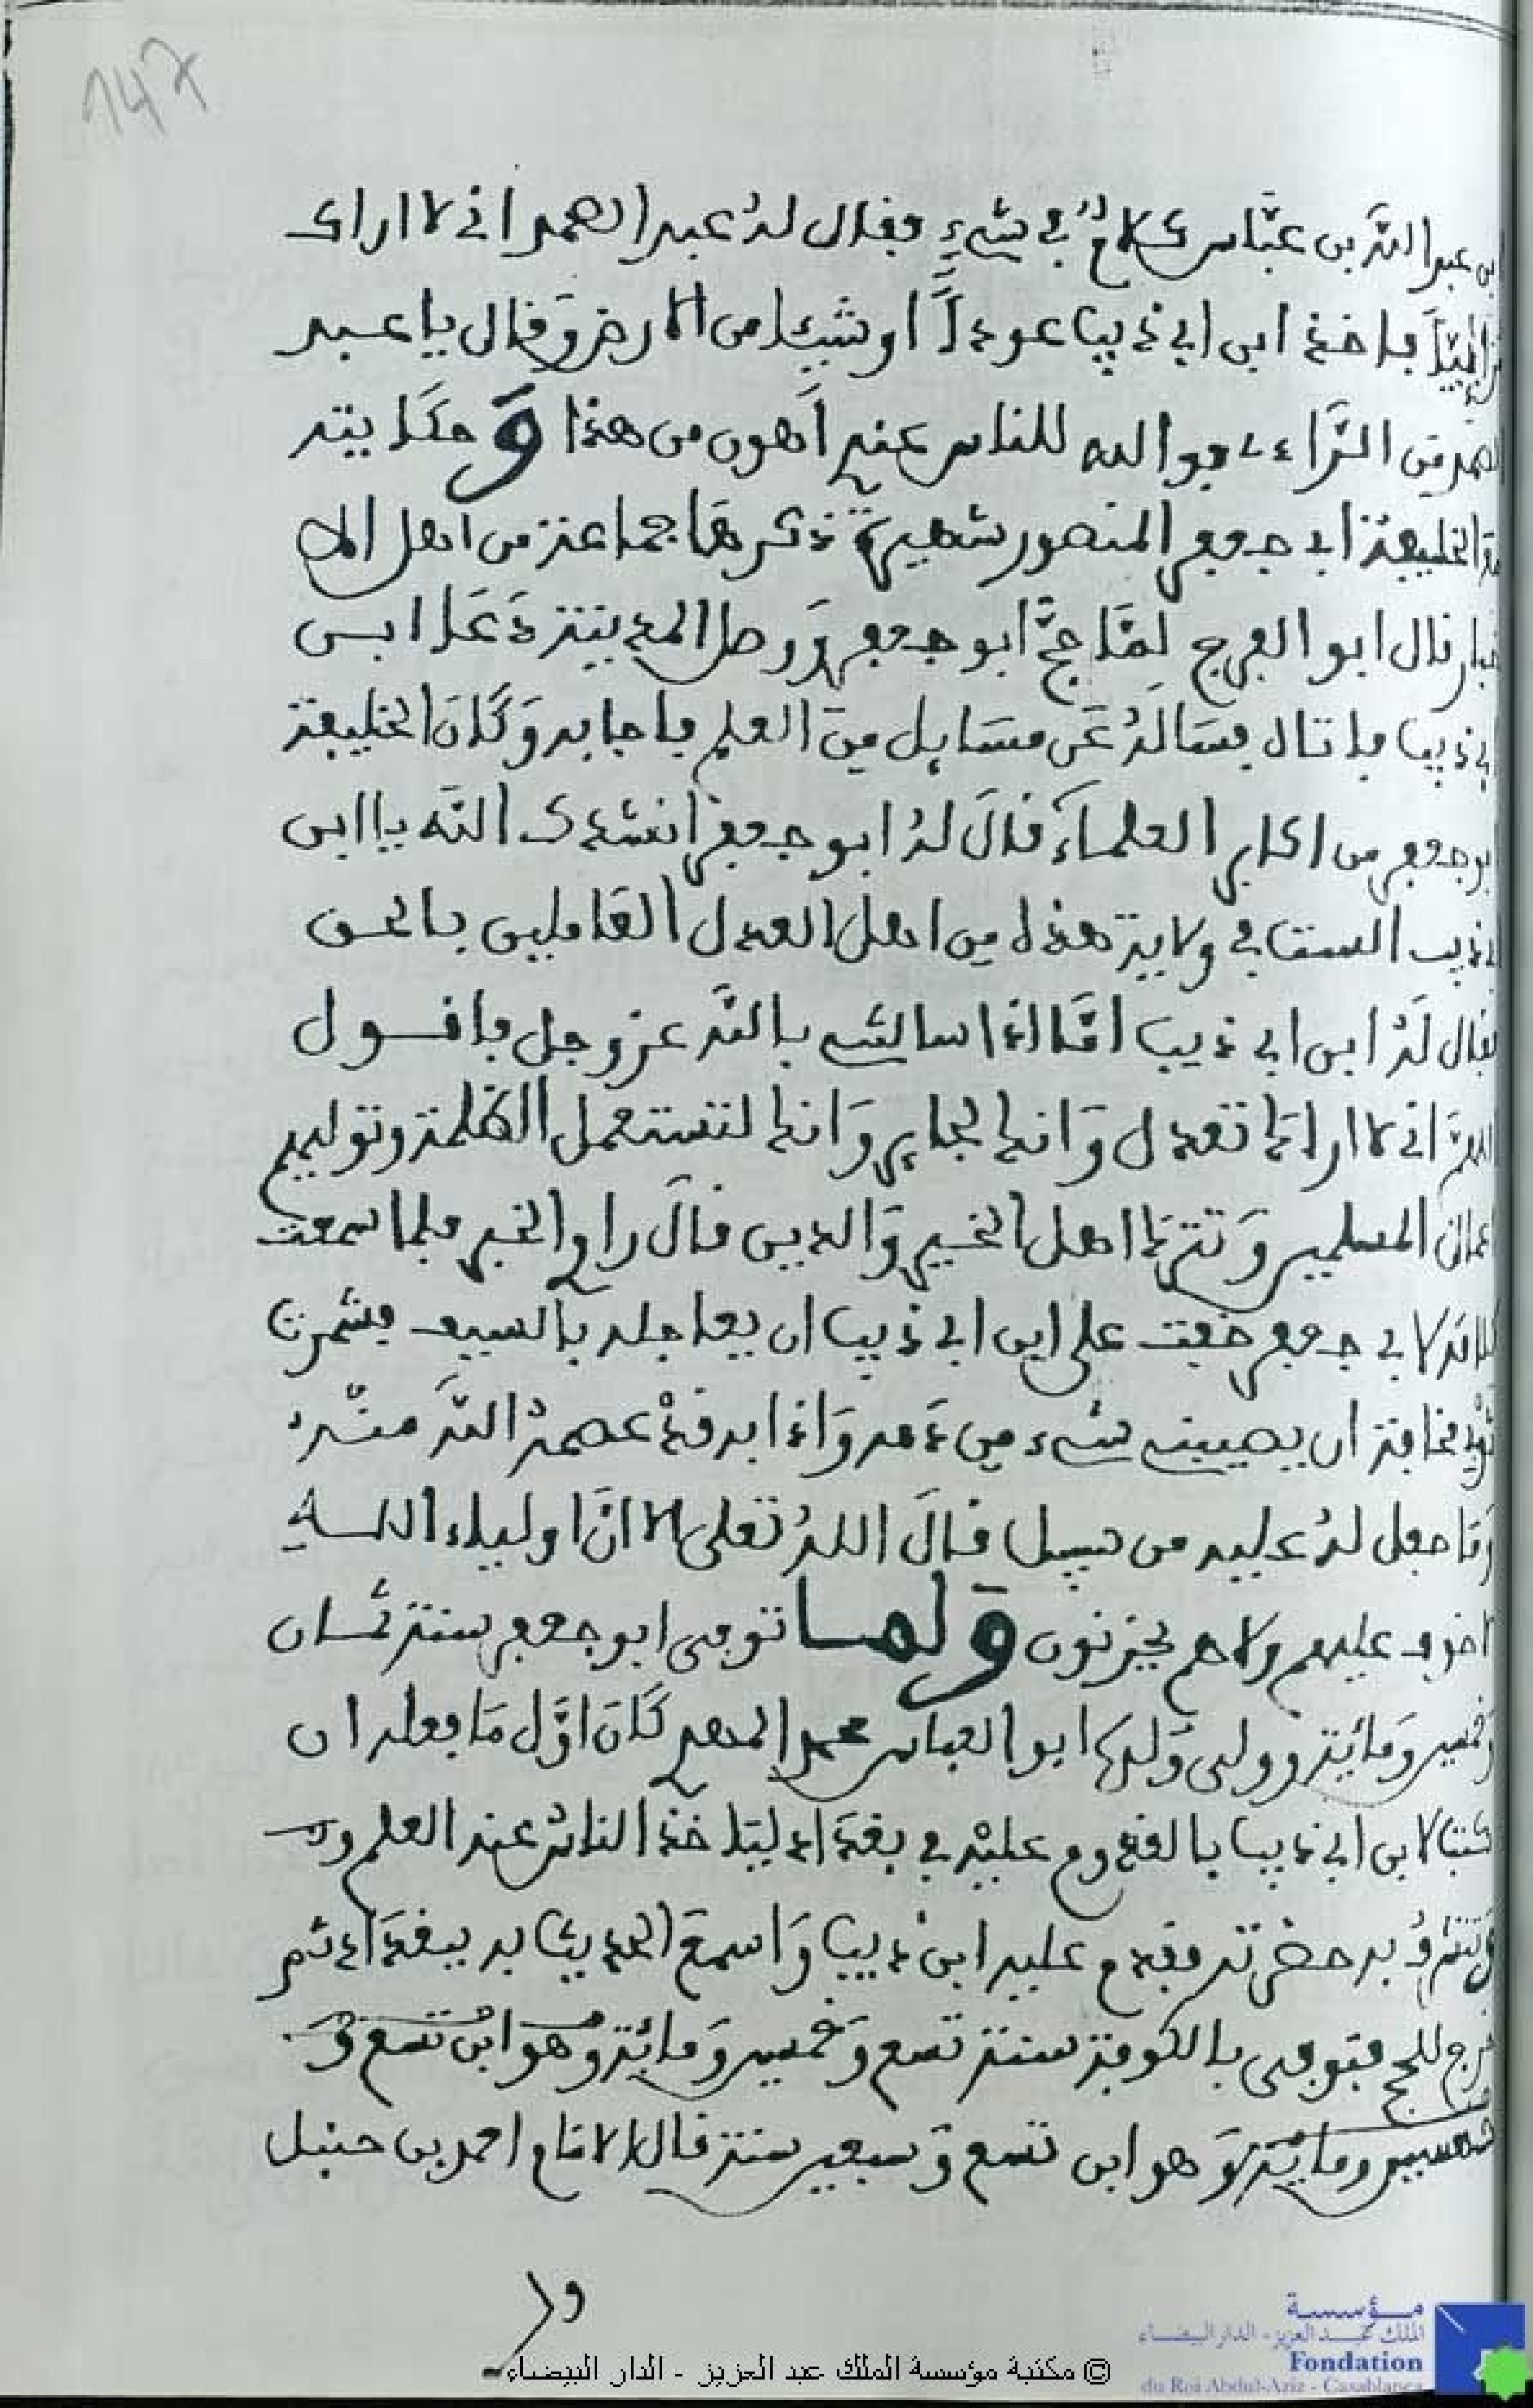 147
بن عبد الله بن عباس كلام في شيء فقال له عبد الصمد اني لا اراك
مرائيا فاخذ ابن ابي ذيب عودا او شيئا من الارض وقال يا عبد
الصمد من اراءي فوالله للناس عندي أهون من هذا وحكايته
مع الخليفة ابي جعفر المنصور شهيرة ذكرها جماعة من اهل الا
خبار قال ابو الفرج لما حج ابو جعفر ووصل المدينة دعا ابن
ابي ذيب فاتاه فساله عن مسايل من العلم فاجابه وكان الخليفة
ابو جعفر من اكابر العلماء قال له ابو جعفر انشدك الله يا ابن
ابي ذيب الست في ولايتي هذه من اهل العدل القاملين بالحق
فقال له ابن ابي ذيب اما اذا سالتني بالله عز وجل فاقول
اللهم اني لا اراك تعدل وانك لجاير وانك لتستعمل الظلمة وتوليهم
اعمال المسلمين وتترك اهل الخير والدين قال راوي الخبر فلما سمعت
كلامه لابي جعفر خفت على ابن ابي ذيب ان يعاجله بالسيف فشمرت
ثوبي مخافة ان يصيبني شيء من دمه واذا به قد عصمه الله منه
وما جعل له عليه من سبيل قال الله تعلى الا ان اولياء الله
لا خوف عليهم ولا هم يحزنون ولما توفى ابو جعفر سنة ثمان
وخمسين ومائة وولى ولده ابو العباس محمد المهدي كان اول ما فعله ان
كتب لابن ابي ذيب بالقدوم عليه في بغداد لياخذ الناس عنه العلم و
تتشرف به حضرته فقدم عليه ابن ذيب واسمع الحديث به ببغداد ثم
خرج للحج فتوفى بالكوفة سنة تسع وخمسين ومائة وهو ابن تسع و
خمسين ومائة وهو ابن تسع وسبعين سنة قال الامام احمد بن حنبل
© مكتبة مؤسسة الملك عبد العزيز - الدار البيضاء
مؤسسة
الملك عبد العزيز - الدار البيضاء
Fondation
du Roi Abdul-Aziz - Casablanca